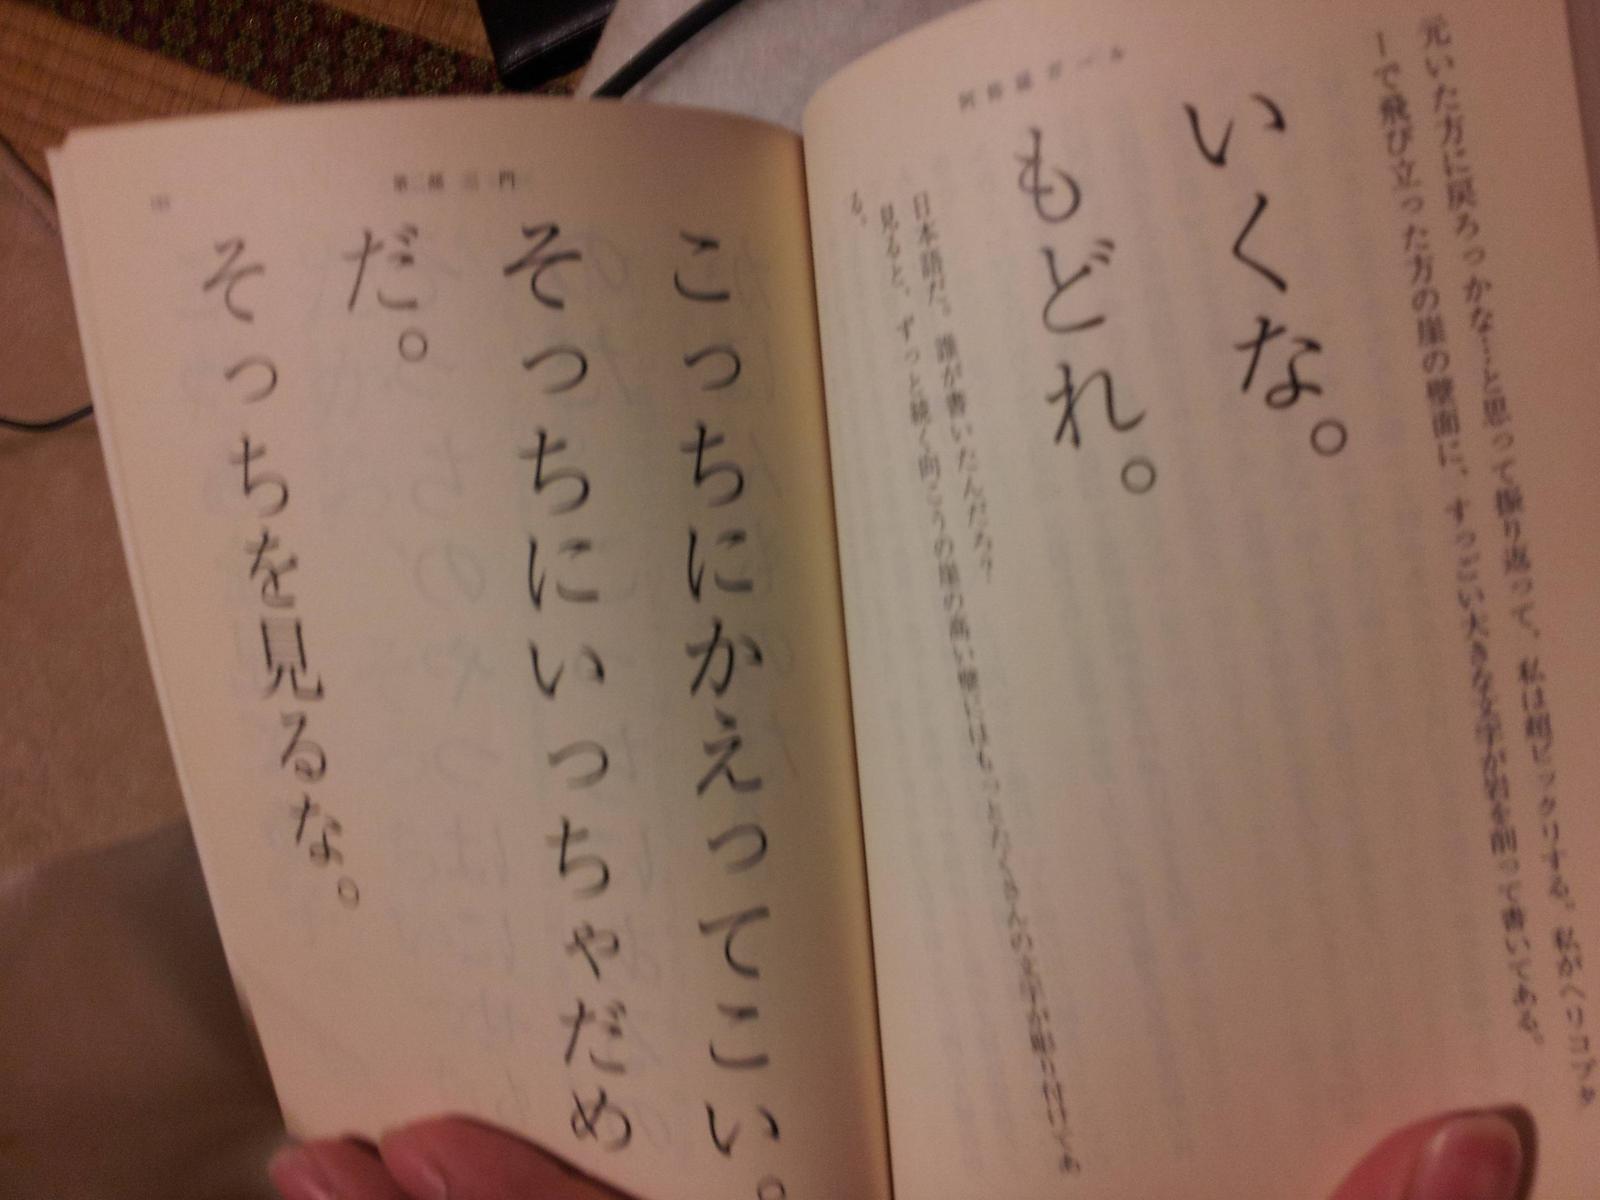 元いた方に戻ろっかな…と思って振り返って、私は超ビックリする。私がヘリコプタ
ーで飛び立った方の崖の壁面に、すっごい大きな文字が岩を削って書いてある。
いくな。
もどれ。
日本語だ。誰が書いたんだろう?
見ると、ずっと続く向こうの崖の高い壁にはもっとたくさんの文字が
る。
こっちにかえってこい。
そっちにいっちゃだめ
だ。
そっちを見るな。
第二部 三門